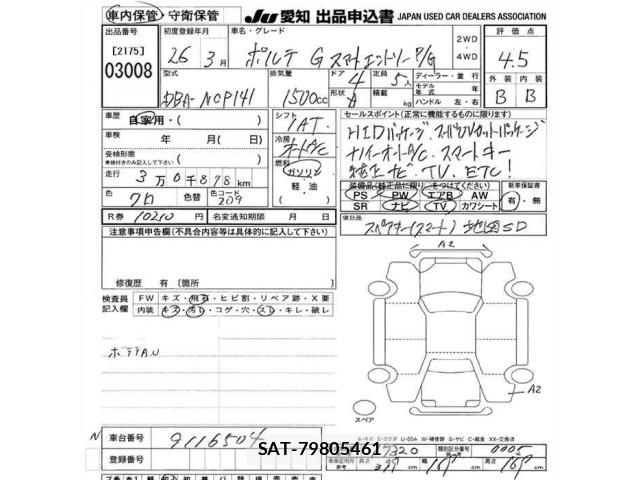 車内保管・守衛保管 JU 愛知 出品申込書 JAPAN USED CAR DEALERS ASSOCIATION
出品番号 初度登録年月 車名・グレード 2WD・4WD 評価点
[2175] 26年 3月 ポルテ G スマートエントリー P/G 4.5
03008 型式 排気量 ドア 4 定員 5人 ディーラー・並行 外装 内装
DBA-NCP141 1500cc 形状 積載 kg モデル年式 年 ハンドル 左・右 B B
車歴 自家用・( ) シフト セールスポイント(正常に機能するものに限ります)
車検 年 月( 日) IAT HIDパッケージ、スーパーUVカットパッケージ
受検形態 ( ) 冷房 オートA/C ナノイーオートA/C、スマートキー
車検付きのみ記入して下さい 燃料 純正ナビ、TV、ETC!
走行 3万0千878km ガソリン 装備品(純正品に限り○をつけてください) 新車保証書
色 クロ 色替 色コード 209 軽・油 ( ) PS PW エアB AW 有・無
R券 10210円 名変通知期限 月 日 SR ナビ TV カワシート
注意事項申告欄(不具合内容等は具体的に記入して下さい) 後日品
スペアキー(スマート) 地図SD
修復歴 有 〔箇所
A2
検査員記入欄 FW キズ・飛石・ヒビ割・リペア跡・X要
内装 キズ・汚レ・コゲ・穴・スレ・キレ・破レ
A2
スペア
車台番号 9116504
登録番号
SAT-79805461
類別区分番号 0005
長さ 399cm 幅 169cm 高さ 169cm